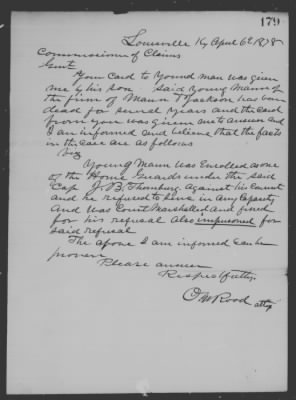 179
Louisville Ky April 6th 1878
Commissioners of Claims
Gent
Your Card to Yound Man was given
me by his son Said Young Mann of
the firm of Mann & Jackson has been
dead for several years and the card
from you was given me to answer and
I am informed and believe that the facts
in the case are as follows
Viz
Young Mann was Enrolled as one
of the Home Guards under the said
Cap J. B. Thornburg Against his Consent
and he refused to serve in Any Capacity
And was Court Marshalled and fined
for his refusal also imprisoned for
said refusal
The above I am informed can be
proven
Please answer
Respectfully
O M Rood atty